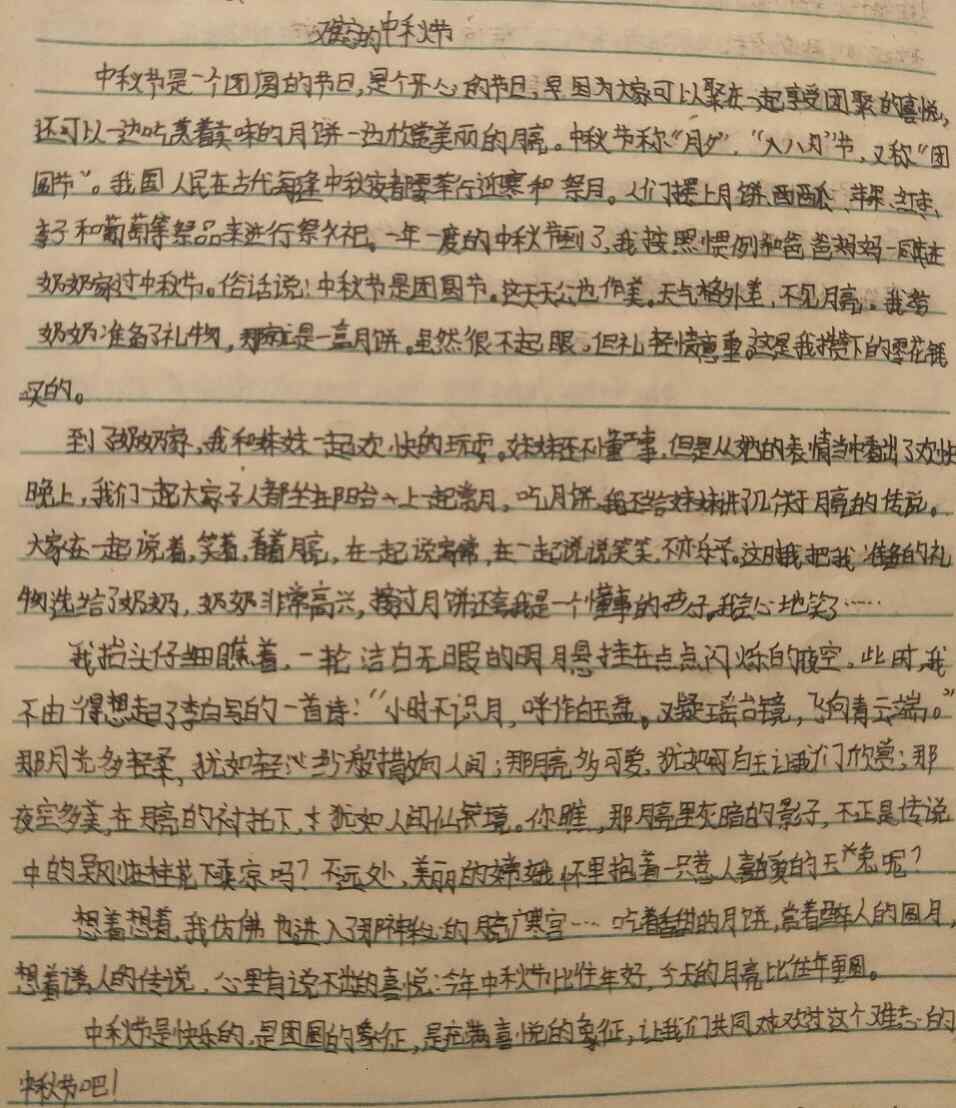 难忘的中秋节
中秋节是一个团圆的节日,是个开心的节日,是因为大家可以聚在一起享受团聚的喜悦,
还可以一边吃着美味的月饼一边欣赏美丽的月亮。中秋节称“月夕”、“八月”节,又称“团
圆节”。我国人民在古代每逢中秋夜都要举行迎寒和祭月。人们摆上月饼、西瓜、苹果、红枣、
李子和葡萄等祭品来进行祭祀。一年一度的中秋节到了,我按照惯例和爸爸妈妈一同去
奶奶家过中秋节。俗话说:中秋节是团圆节。这天天公也作美。天气格外差,不见月亮。我给
奶奶准备了礼物,那就是一盒月饼。虽然很不起眼,但礼轻情意重。这是我攒下的零花钱
买的。
到了奶奶家,我和妹妹一起欢快的玩耍。妹妹还不懂事,但是从她的表情当中看出了欢快
晚上,我们一起大家子人都坐在阳台上一起赏月,吃月饼,我还给妹妹讲了几个关于月亮的传说。
大家在一起说着,笑着,看着月亮,在一起说家常,在一起说说笑笑,不亦乐乎。这时我把我准备的礼
物送给了奶奶,奶奶非常高兴,接过月饼还夸我是一个懂事的孩子。我会心地笑了……
我抬头仔细瞧着,一轮洁白无暇的明月悬挂在点点闪烁的夜空。此时,我
不由得想起了李白写的一首诗:“小时不识月,呼作白玉盘。又疑瑶台镜,飞向青云端。”
那月光多轻柔,犹如轻沙般撒向人间;那月亮多可爱,犹如白玉让我们欣赏;那
夜空多美,在月亮的衬托下,犹如人间仙境。你瞧,那月亮里灰暗的影子,不正是传说
中的吴刚在桂花下乘凉吗?不远处,美丽的嫦娥怀里抱着一只惹人喜爱的玉兔呢?
想着想着,我仿佛也进入了那神秘的月亮广寒宫……吃着香甜的月饼,赏着醉人的圆月,
想着诱人的传说,心里有说不出的喜悦:今年中秋节比往年好,今天的月亮比往年更圆。
中秋节是快乐的,是团圆的象征,是充满喜悦的象征,让我们共同欢过这个难忘的
中秋节吧!